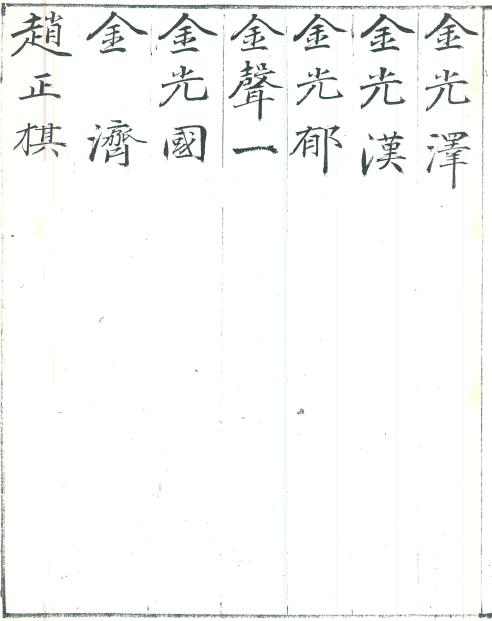 金光澤
金光漢
金光郁
金聲一
金光國
金濟
趙正棋